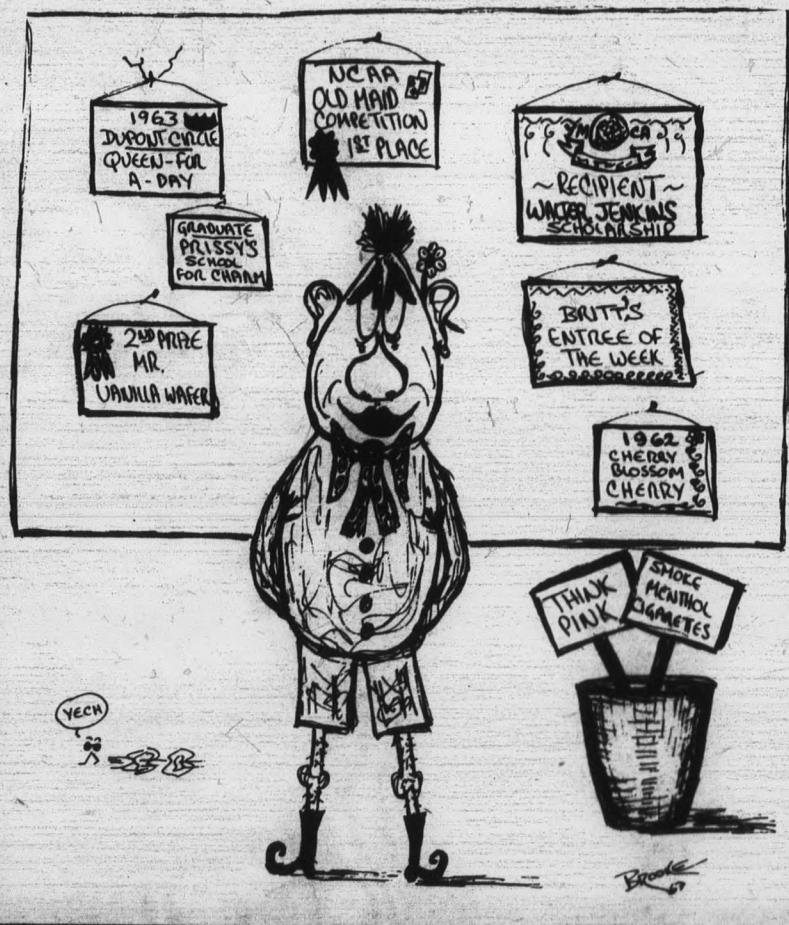 1963
DUPONT CIRCLE
QUEEN-FOR
A-DAY
NCAA
OLD MAID
COMPETITION
1ST PLACE
YM CA
~RECIPIENT~
WALTER JENKINS
SCHOLARSHIP
GRADUATE
PRISSY'S
SCHOOL
FOR CHARM
BRITT'S
ENTREE OF
THE WEEK
2ND PRIZE
MR.
VANILLA WAFER
1962
CHERRY
BLOSSOM
CHERRY
THINK
PINK
SMOKE
MENTHOL
CIGARETES
YECH
BROOKE